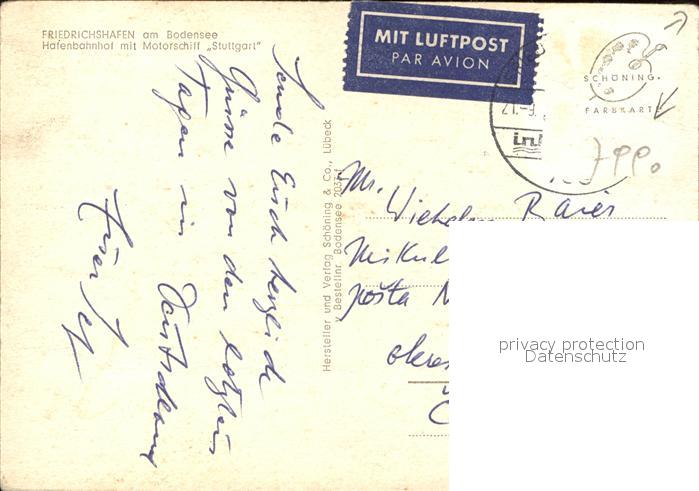 FRIEDRICHSHAFEN am Bodensee
Hafenbahnhof mit Motorschiff „Stuttgart"
MIT LUFTPOST
PAR AVION
SCHÖNING
FARBKARTE
21.-9.
Sende Euch herzlich
Grüsse von den letzten
Tagen in Deutschland
Euer
Hersteller und Verlag Schöning & Co., Lübeck
Bestellnr. Bodensee
Mr.
Wilhelm Baier
Mikul
pošta
okres
Č
privacy protection
Datenschutz